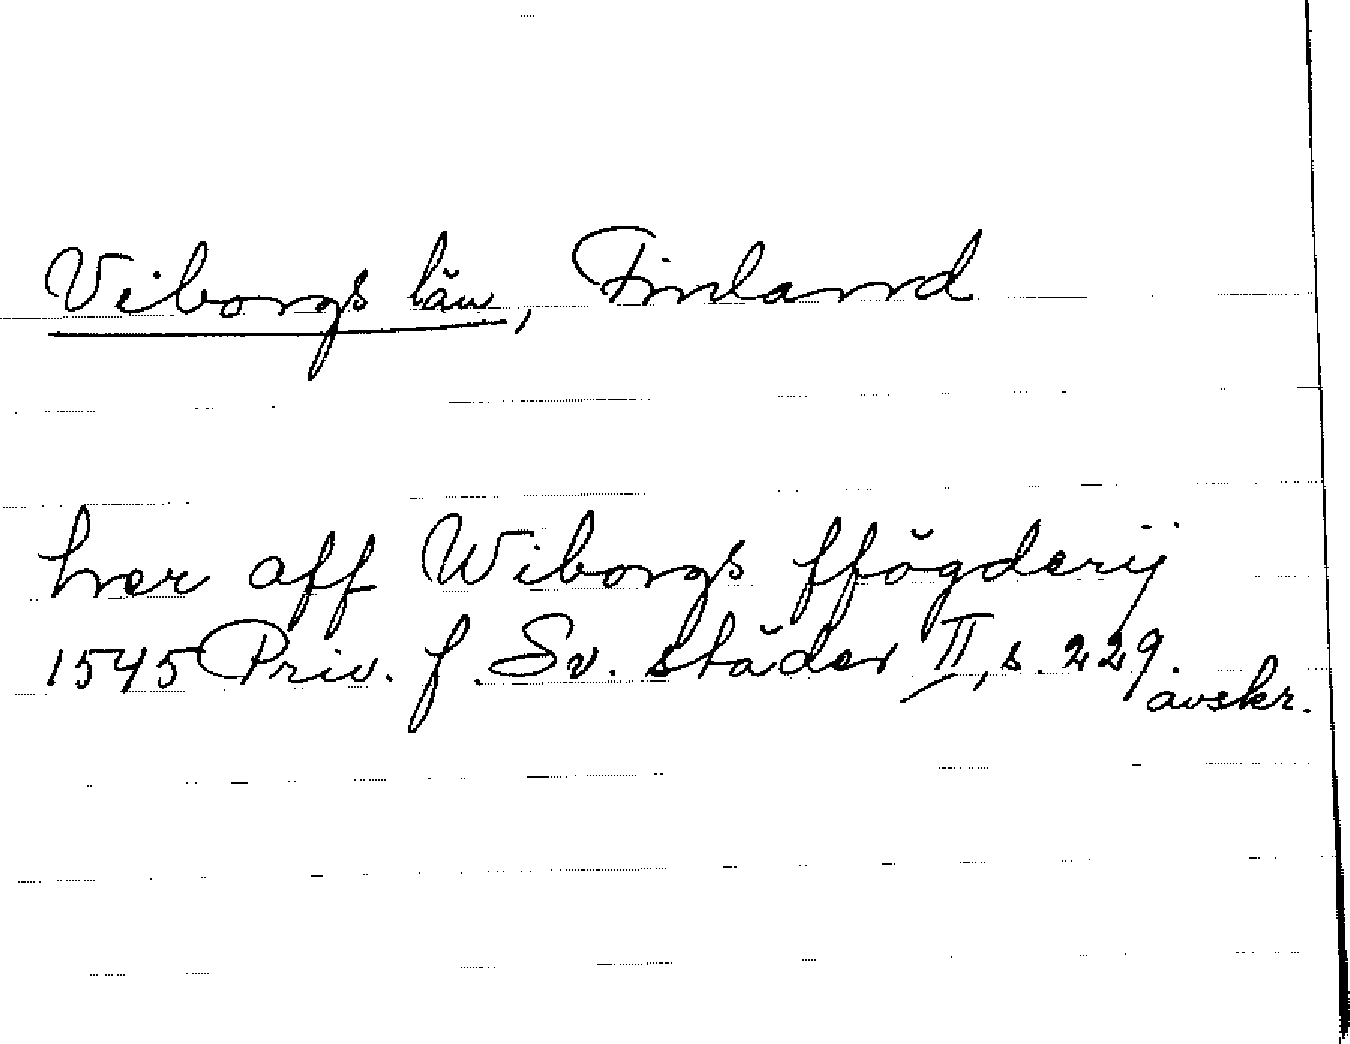 Viborgs län, Finland
hver aff Wiborgs ffögderij
1545 Priv. f. Sv. städer II, s. 229.
avskr.